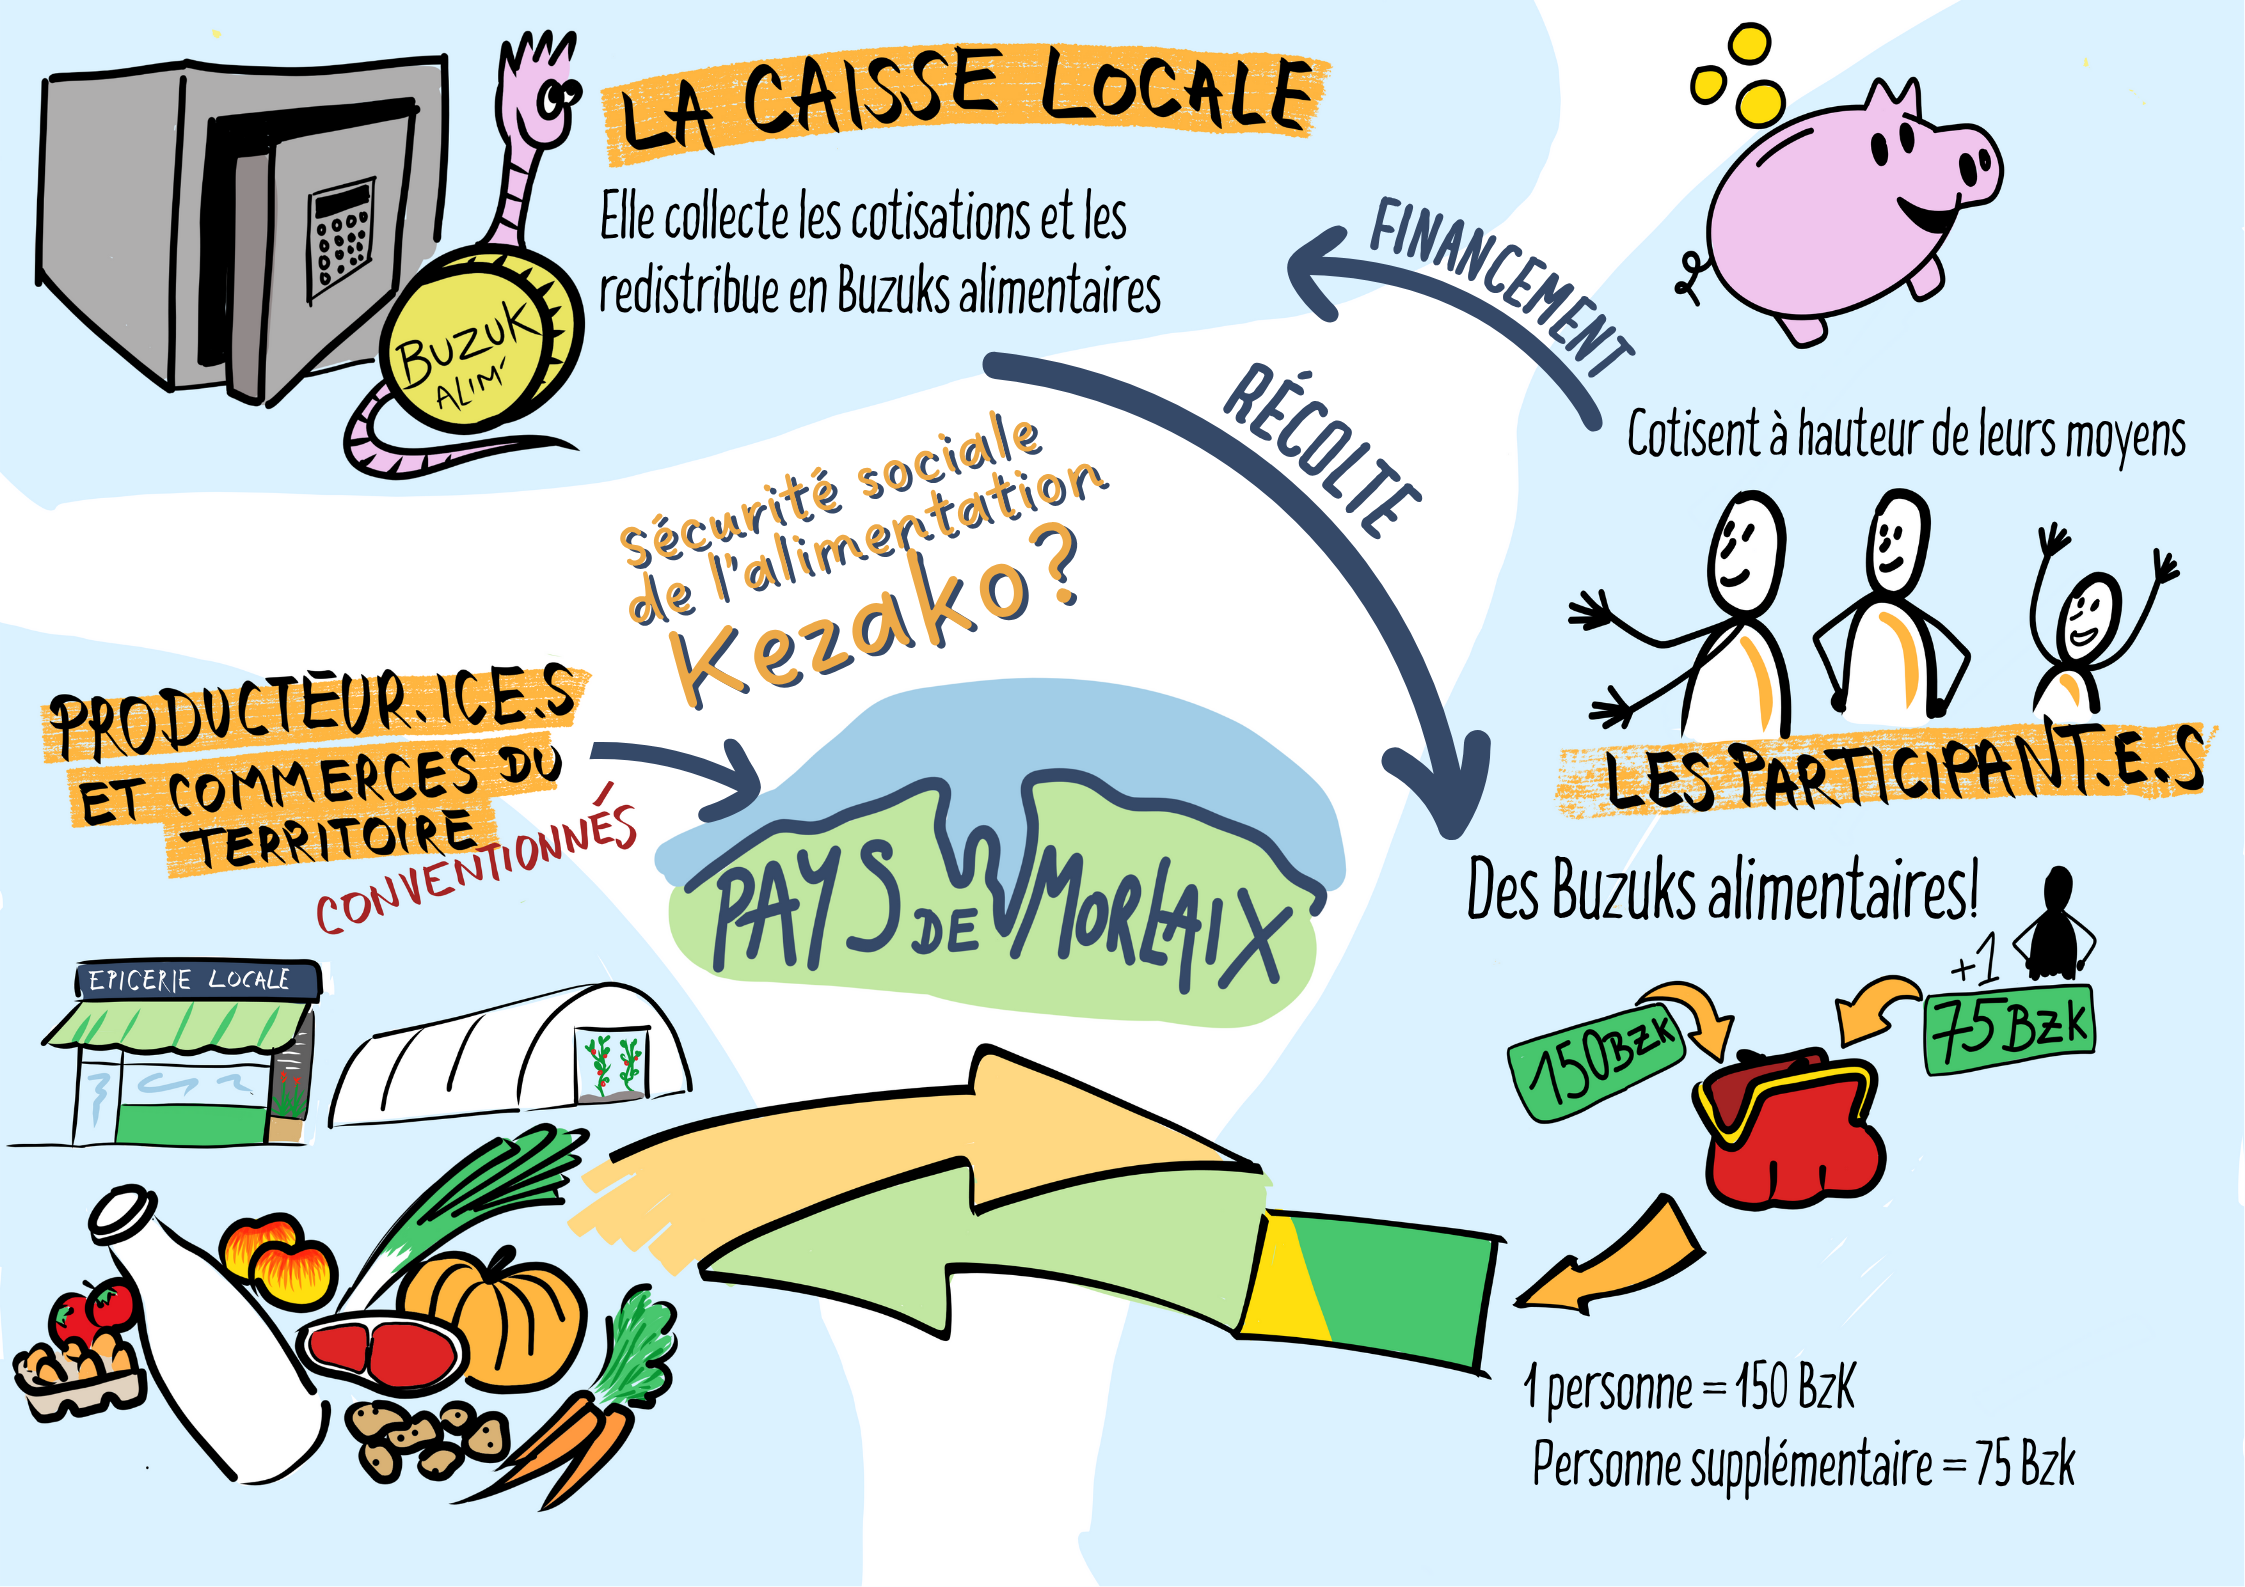 LA CAISSE LOCALE
Elle collecte les cotisations et les
redistribue en Buzuks alimentaires
BUZUK
ALIM'
FINANCEMENT
RÉCOLTE
Cotisent à hauteur de leurs moyens
Sécurité sociale
de l'alimentation
Kezako?
PRODUCTEUR.ICE.S
ET COMMERCES DU
TERRITOIRE
CONVENTIONNÉS
PAYS DE MORLAIX
LES PARTICIPANT.E.S
Des Buzuks alimentaires!
+1
150 BZK
75 BZK
EPICERIE LOCALE
1 personne = 150 BzK
Personne supplémentaire = 75 Bzk